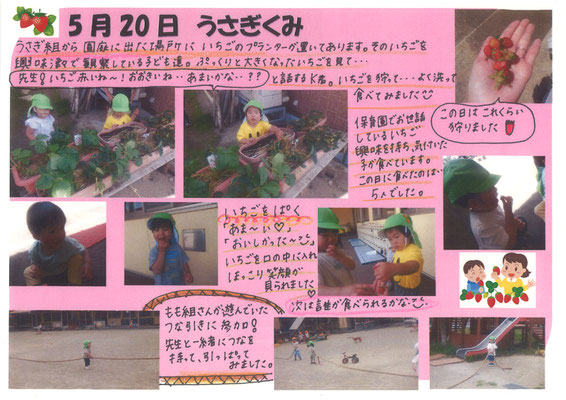 5月20日 うさぎくみ
うさぎ組から園庭に出た場所にいちごのプランターが置いてあります。そのいちごを
興味津々で観察している子ども達。ぷっくりと大きくなったいちごを見て・・・
先生!いちご赤いね~!おおきいね・・あまいかな・・??と話するK君。いちごを狩って・・・よく洗って
食べてみました
保育園でお世話
しているいちご
興味を持ち、気付いた
子が食べています。
この日に食べたのは・・
5人でした。
この日はこれくらい
狩りました
いちごをぱく
「あま~い♡」
「おいしかった~」
いちごを口の中に入れ
ほっこり笑顔が
見られました
次は誰が食べられるかな~
もも組さんが遊んでいた
つな引きに参加!
先生と一緒につなを
持って、引っぱって
みました。